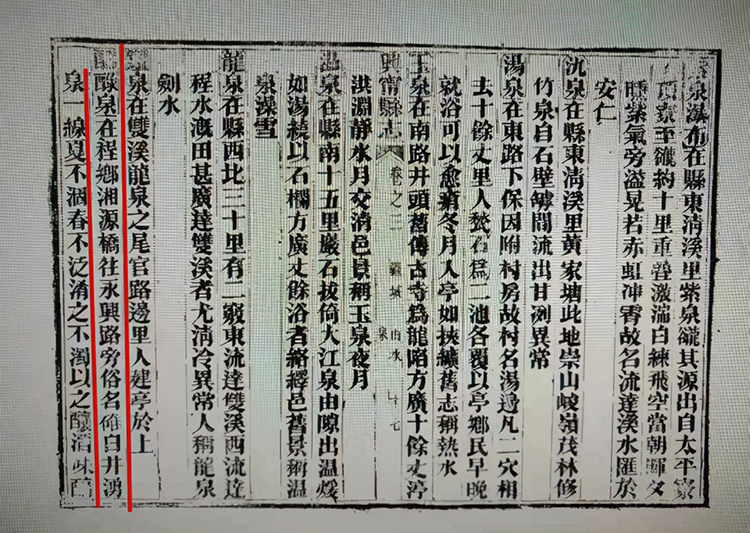 泉瀑布在縣東清溪里紫泉巖其源出自太平寨
寨至巖約十里重巒激湍白練飛空當朝暉夕
曛紫氣旁溢晃若赤虹冲霄故名流達溪水匯於
安仁
氿泉在縣東清溪里黄家塘此地崇山峻嶺茂林修
竹泉自石壁罅間流出甘洌異常
湯泉在東路下保因附村房故村名湯邊凡二穴相
去十餘丈里人甃石爲二池各覆以亭鄉民早晚
就浴可以愈瘡冬月人亭如挾纊舊志稱熱水
玉泉在南路井頭舊傳古寺爲龍陷方廣十餘丈渟
興甯縣志 卷之二 疆域 山水 泉
洪淵靜水月交淸邑景稱玉泉夜月
温泉在縣南十五里巖石拔倚大江泉由隙出温煖
如湯繞以石欄方廣丈餘浴者絡繹邑舊景稱温
泉漾雪
龍泉在縣西北三十里有二竅東流達雙溪西流達
程水溉田甚廣達雙溪者尤清冷異常人稱龍泉
劍水
泉在雙溪龍泉之尾官路邊里人建亭於上
醁泉在程鄉湘源橋往永興路旁俗名碓臼井湧
泉一線夏不涸春不泛淆之不濁以之釀酒味